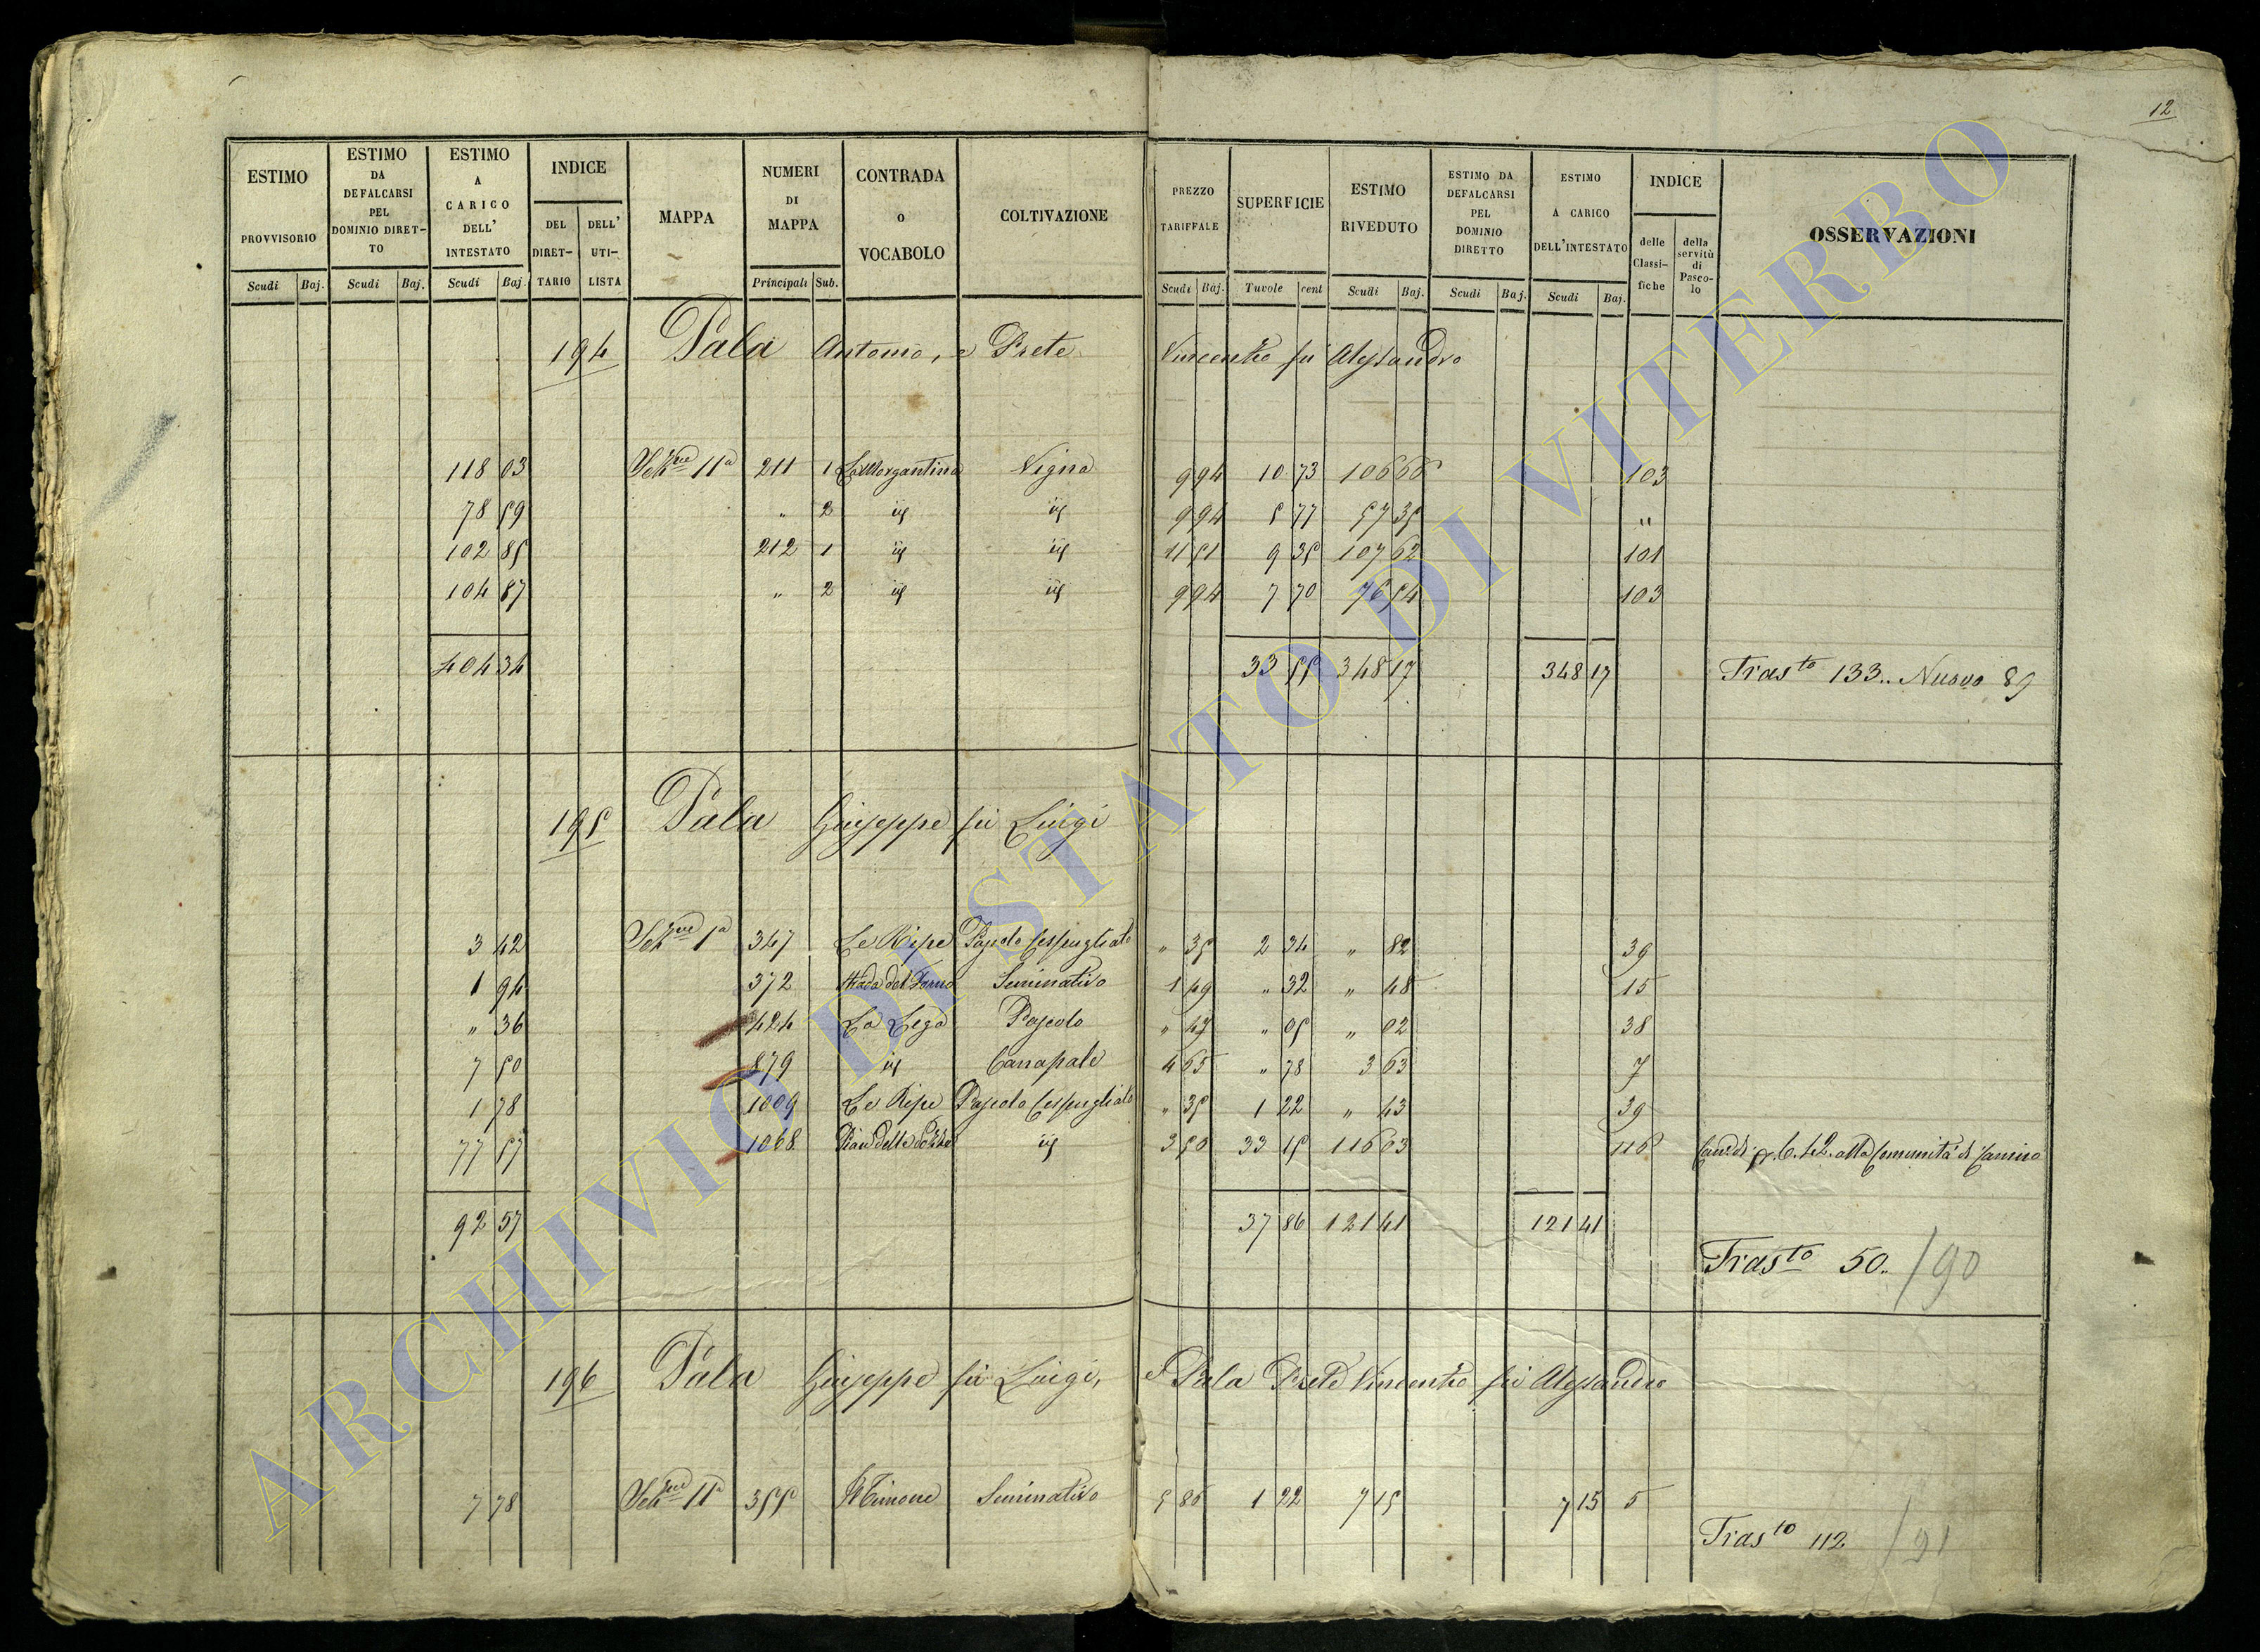 12
ESTIMO PROVVISORIO Scudi Baj. ESTIMO DA DEFALCARSI PEL DOMINIO DIRETTO Scudi Baj. ESTIMO A CARICO DELL' INTESTATO Scudi Baj. INDICE DEL DIRETTARIO DELL' UTILISTA MAPPA NUMERI DI MAPPA Principali Sub. CONTRADA O VOCABOLO COLTIVAZIONE PREZZO TARIFFALE Scudi Baj. SUPERFICIE Tavole cent ESTIMO RIVEDUTO Scudi Baj. ESTIMO DA DEFALCARSI PEL DOMINIO DIRETTO Scudi Baj. ESTIMO A CARICO DELL'INTESTATO Scudi Baj. INDICE delle Classifiche della servitù di Pascolo OSSERVAZIONI
194 Pala Antonio, e Prete Vincenzo fu Alessandro
118 03 Sez.ne 11a 211 1 La Morgantina Vigna 9 94 10 73 106 66 103
78 59 " 2 id id 9 94 5 77 57 35 "
102 85 212 1 id id 11 51 9 35 107 62 101
104 87 " 2 id id 9 94 7 70 76 54 103
404 34 33 55 348 17 348 17 Trasto 133.. Nuovo 89
195 Pala Giuseppe fu Luigi
3 42 Sez.ne 1a 347 Le Ripe Pascolo Cespugliato " 35 2 34 " 82 39
1 94 372 Strada del Forno Seminativo 1 49 " 32 " 48 15
" 36 424 La Lega Pascolo " 47 " 05 " 02 38
7 50 879 id Canapale 4 65 " 78 3 63 7
1 78 1009 Le Ripe Pascolo Cespugliato " 35 1 22 " 43 39
77 57 1068 Pian delle id 3 50 33 15 116 03 116 6.42. alla Comunità di Canino
92 57 37 86 121 41 121 41
Trasto 50.. /90
196 Pala Giuseppe fu Luigi, e Pala Prete Vincenzo fu Alessandro
7 78 Sez.ne 11a 355 Il Timone Seminativo 5 86 1 22 7 15 7 15 5
Trasto 112. /91
ARCHIVIO DI STATO DI VITERBO